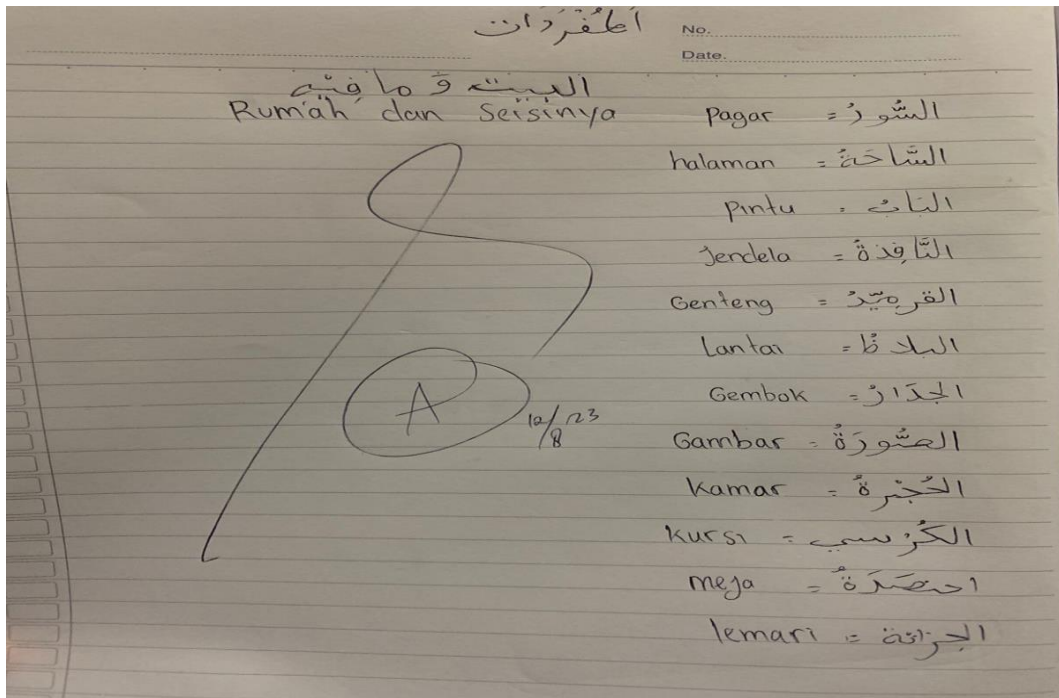 المُفْرَدَات
No.
Date.
البيت وَ ما فِيْه
Rumah dan Seisinya
Pagar = السُّورُ
halaman = السَّاحَةُ
Pintu = البَابُ
Jendela = النَّافِذَةُ
Genteng = القرمِيْدُ
Lantai = البلاطُ
Gembok = الجِدَارُ
Gambar = الصُّورَةُ
Kamar = الحُجْرَةُ
Kursi = الكُرْسي
meja =
lemari = الجزانة
A
12/8 23